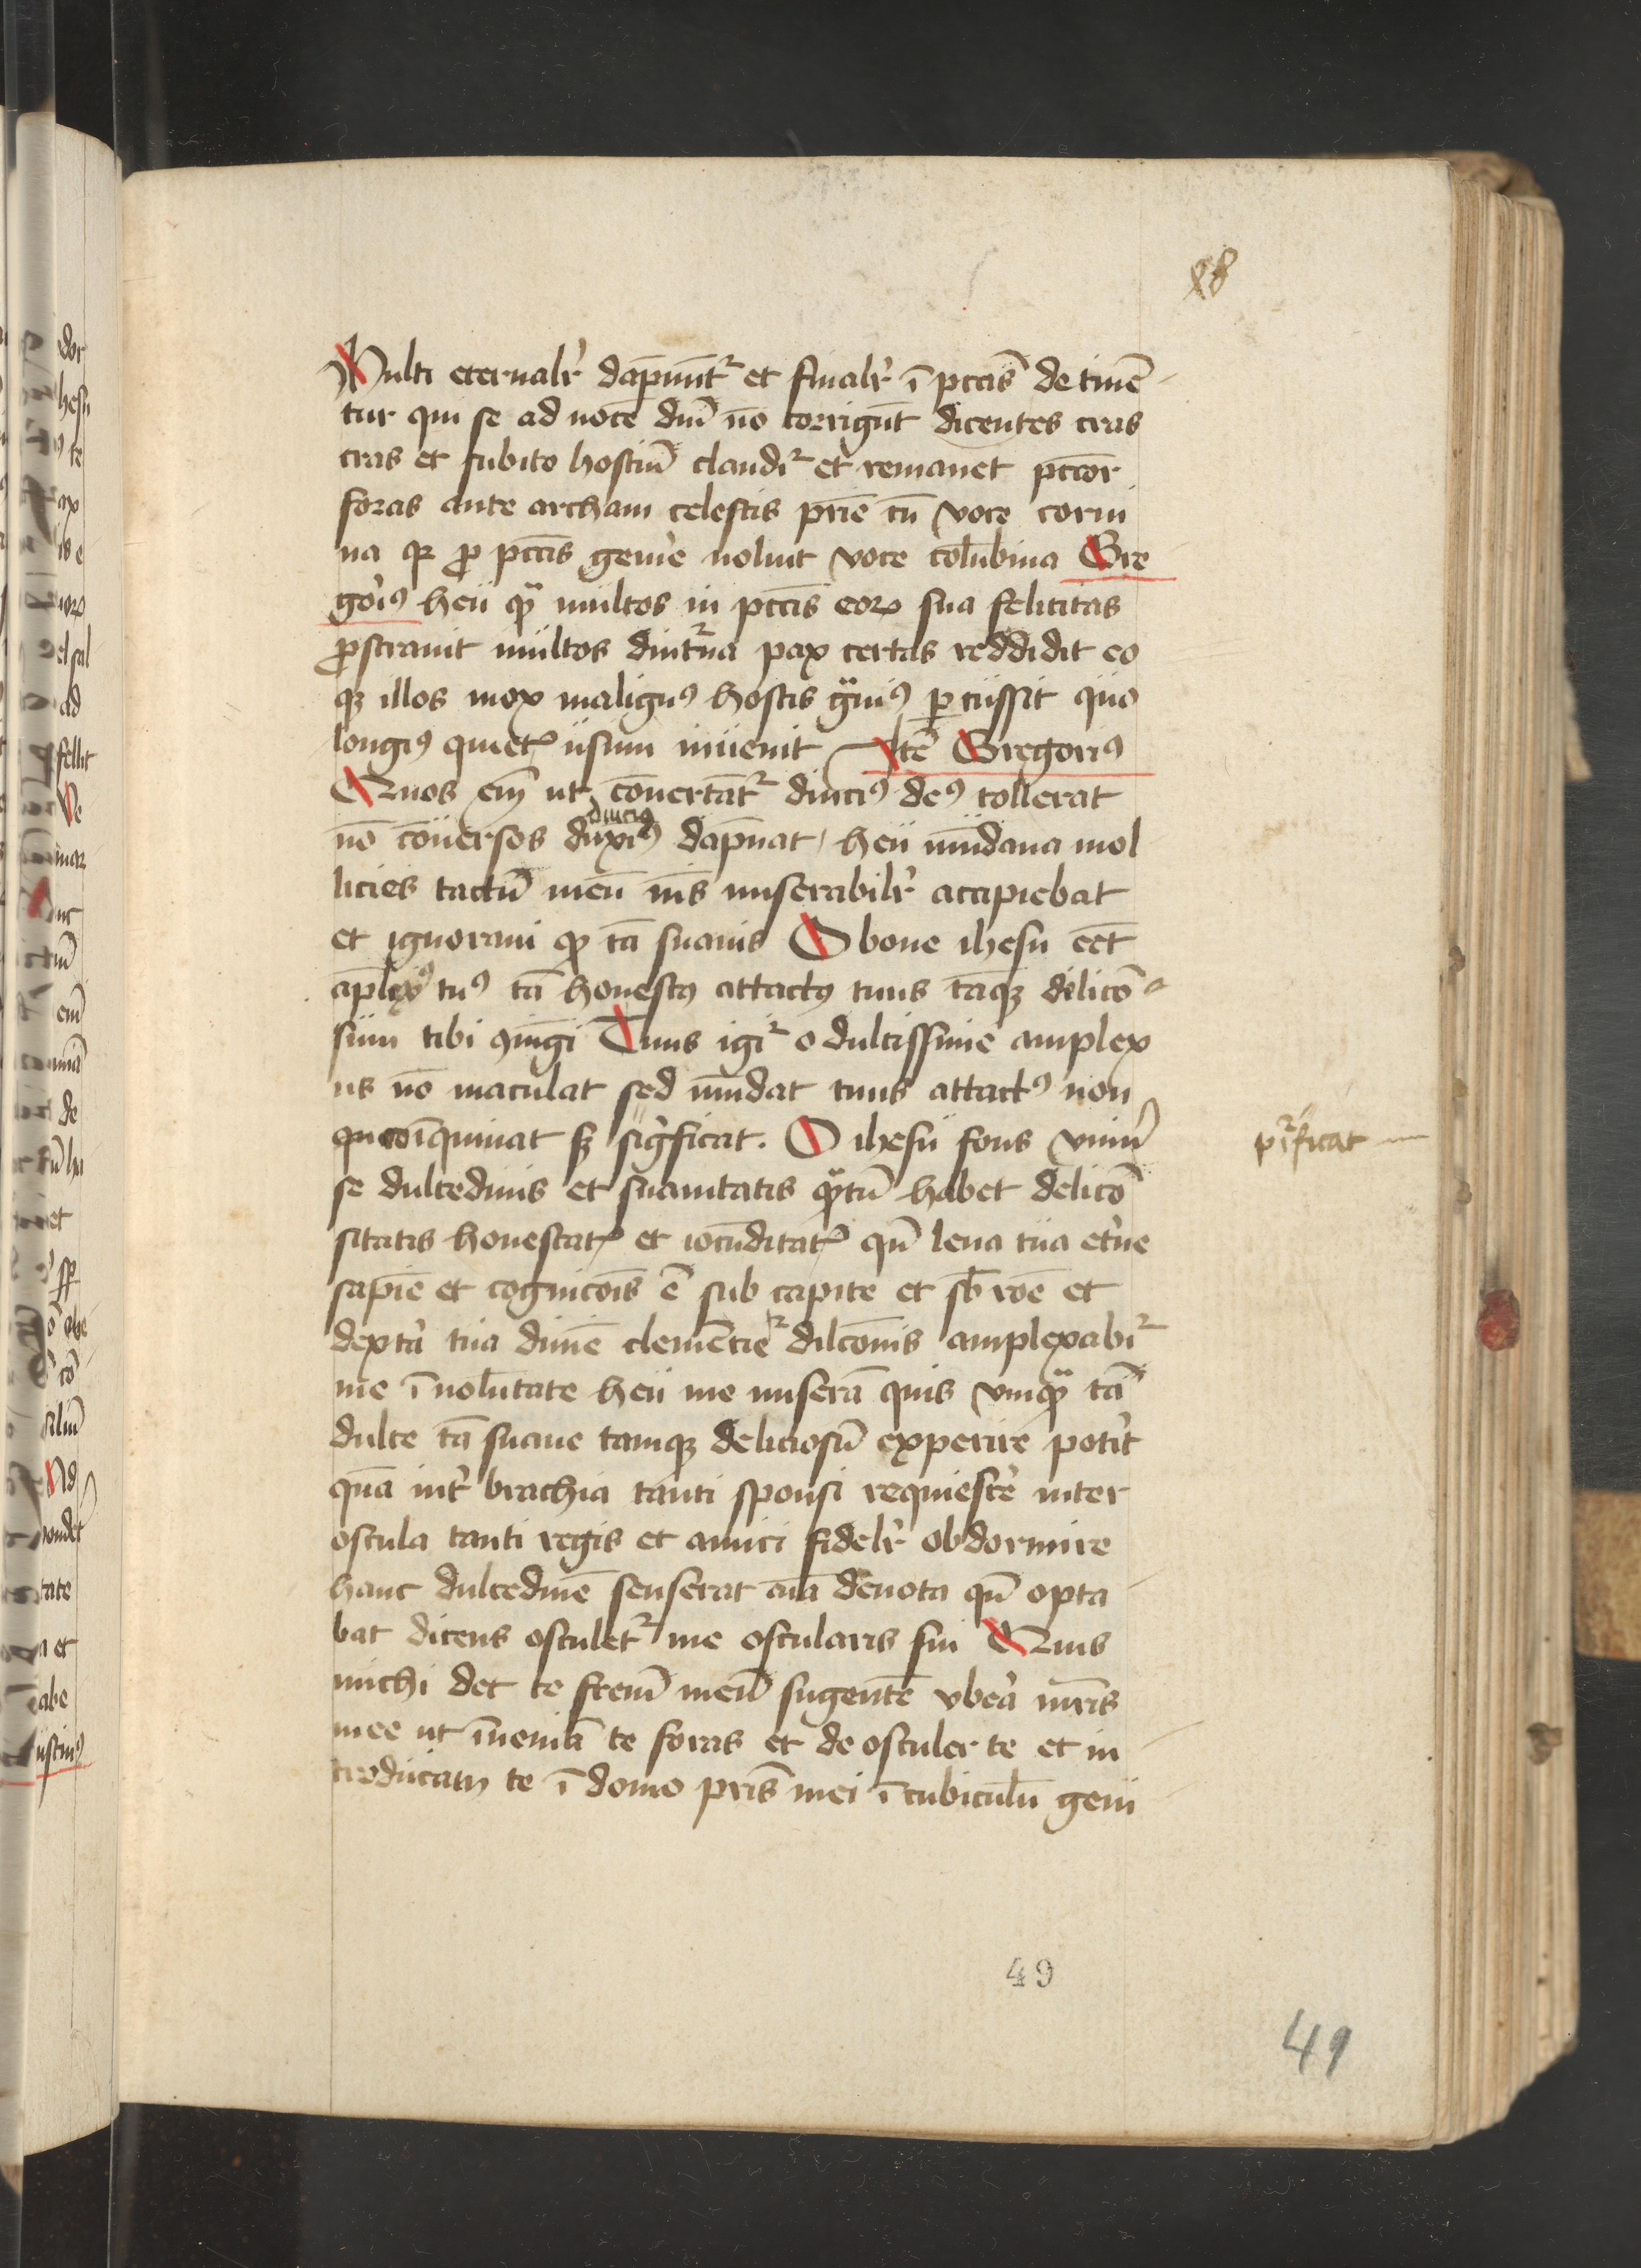 48
Multi eternalr̕ dāpnūt᷑ et finalr̕ ī pctīs detinē
tur qui se ad uocē dnī nō corrigūt dicentes cras
cras et subito hostiū claudi᷑ et remanet pctcor
foras ante archam celestis prīe cū voce corui
na qꝛ ꝓ pctīs gemē noluit voce colūbina Gre
goriꝰ heu qͣ multos in pctīs eoꝝ sua felicitas
ꝓstrauit multos diut᷑na pax certas reddidit eo
qꝫ illos mox malignꝰ hostis gͣuiꝰ ꝑcussit quo
longiꝰ quietꝭ usum inuenit Itē Gregoriꝰ
Quos em̄ ut cōuertāt᷑ diuciꝰ deꝰ tollerat
diuciꝰ
nō cōuersos duriꝰ dāpnat heu mūdana mol
licies tactū meū nīs miserabilr̕ accipiebat
et ignoraui ꝙ tā suauis O bone ihesu eēt
āplexꝰ tuꝰ tā honestꝰ attactꝰ tuus tāqꝫ delicō
sum tibi ꝯiūgi Tuus igi᷑ o dulcissime amplex
us nō maculat sed mūdat tuus attactꝰ non
coīquinat sꝫ sig̕ficat. O ihesu fons vniū̕
pu᷑ficat
se dulcedinis et suauitatis qͣtū habet delicō
sitatis honestatꝭ et iocūditatꝭ qn̄ leua tua et̕ne
sapīe et cognicōis ē sub capite et sb̄ rōe et
dext̕a tua diuīe clemētie dilcōnis amplexabi᷑
me ī uolūtate heu me miserā quis vmqͣ tā
dulce tā suaue tamqꝫ deliciosū experire potit̕
quā int̕ brachia tanti sponsi requiescē̕ inter
oscula tanti regis et amici fidelr̕ obdormire
hanc dulcedinē senserat aīa deuota qn̄ opta
bat dicens osculet᷑ me oscularis sui Quis
michi det te frem̄ meū sugentē vbe̕a mr̄is
mee ut īueniā te foras et deosculer te et in
troducam te ī domo pris̄ mei ī cubiculū geni
49
49